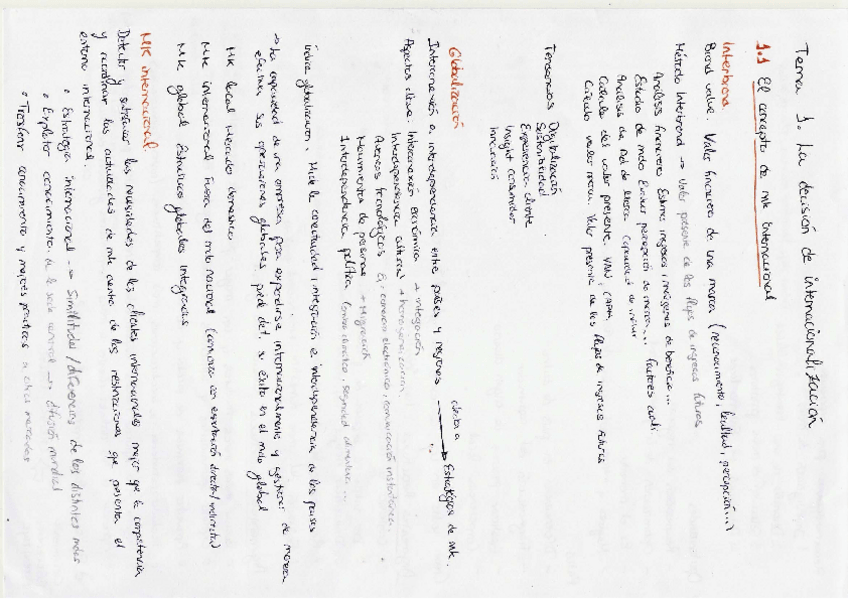 Tema 1. La decisión de internacionalización
1.1 El concepto de mk internacional
Interbrand
Brand value. Valor financiero de una marca (reconocimiento, lealtad, percepción...)
Método Interbrand → Valor presente de los flujos de ingresos futuros
Análisis financiero Estima ingresos y márgenes de beneficio...
Estudio de mdo Evaluar percepción de marca... factores cuali
Análisis de Rol de Marca Capacidad de influir
Cálculo del valor presente. VAN, CAPM,
Cálculo valor marca. Valor presente de los flujos de ingresos futuros
Tendencias Digitalización
Sostenibilidad
Experiencia cliente
Insight consumidor
Innovación
Globalización
Interconexión e interdependencia entre países y regiones afecta a → Estrategias de mk.
Aspectos clave. Interconexión económica → integración
Interdependencia cultural → homogeneización
Avances tecnológicos Ej: comercio electrónico, comunicación instantánea...
Movimientos de personas → Migración
Interdependencia política (cambio climático, seguridad alimentaria...
Índice globalización. Mide la conectividad, integración e interdependencia de los países
→ La capacidad de una empresa para expandirse internacionalmente y gestionar de manera
efectiva sus operaciones globales puede det. su éxito en el mdo global
Mk local Mercado doméstico
Mk internacional Fuera del mdo nacional (comienza con exportación directa/indirecta)
Mk global Estructuras globales integradas
MK internacional.
Detectar y satisfacer las necesidades de los clientes internacionales mejor que la competencia
y coordinar las actividades de mk dentro de las restricciones que presenta el
entorno internacional.
• Estrategia internacional → Similitudes/diferencias de los distintos mdos
• Explotar conocimiento de la sede central → difusión mundial
• Transferir conocimiento y mejores prácticas a otros mercados